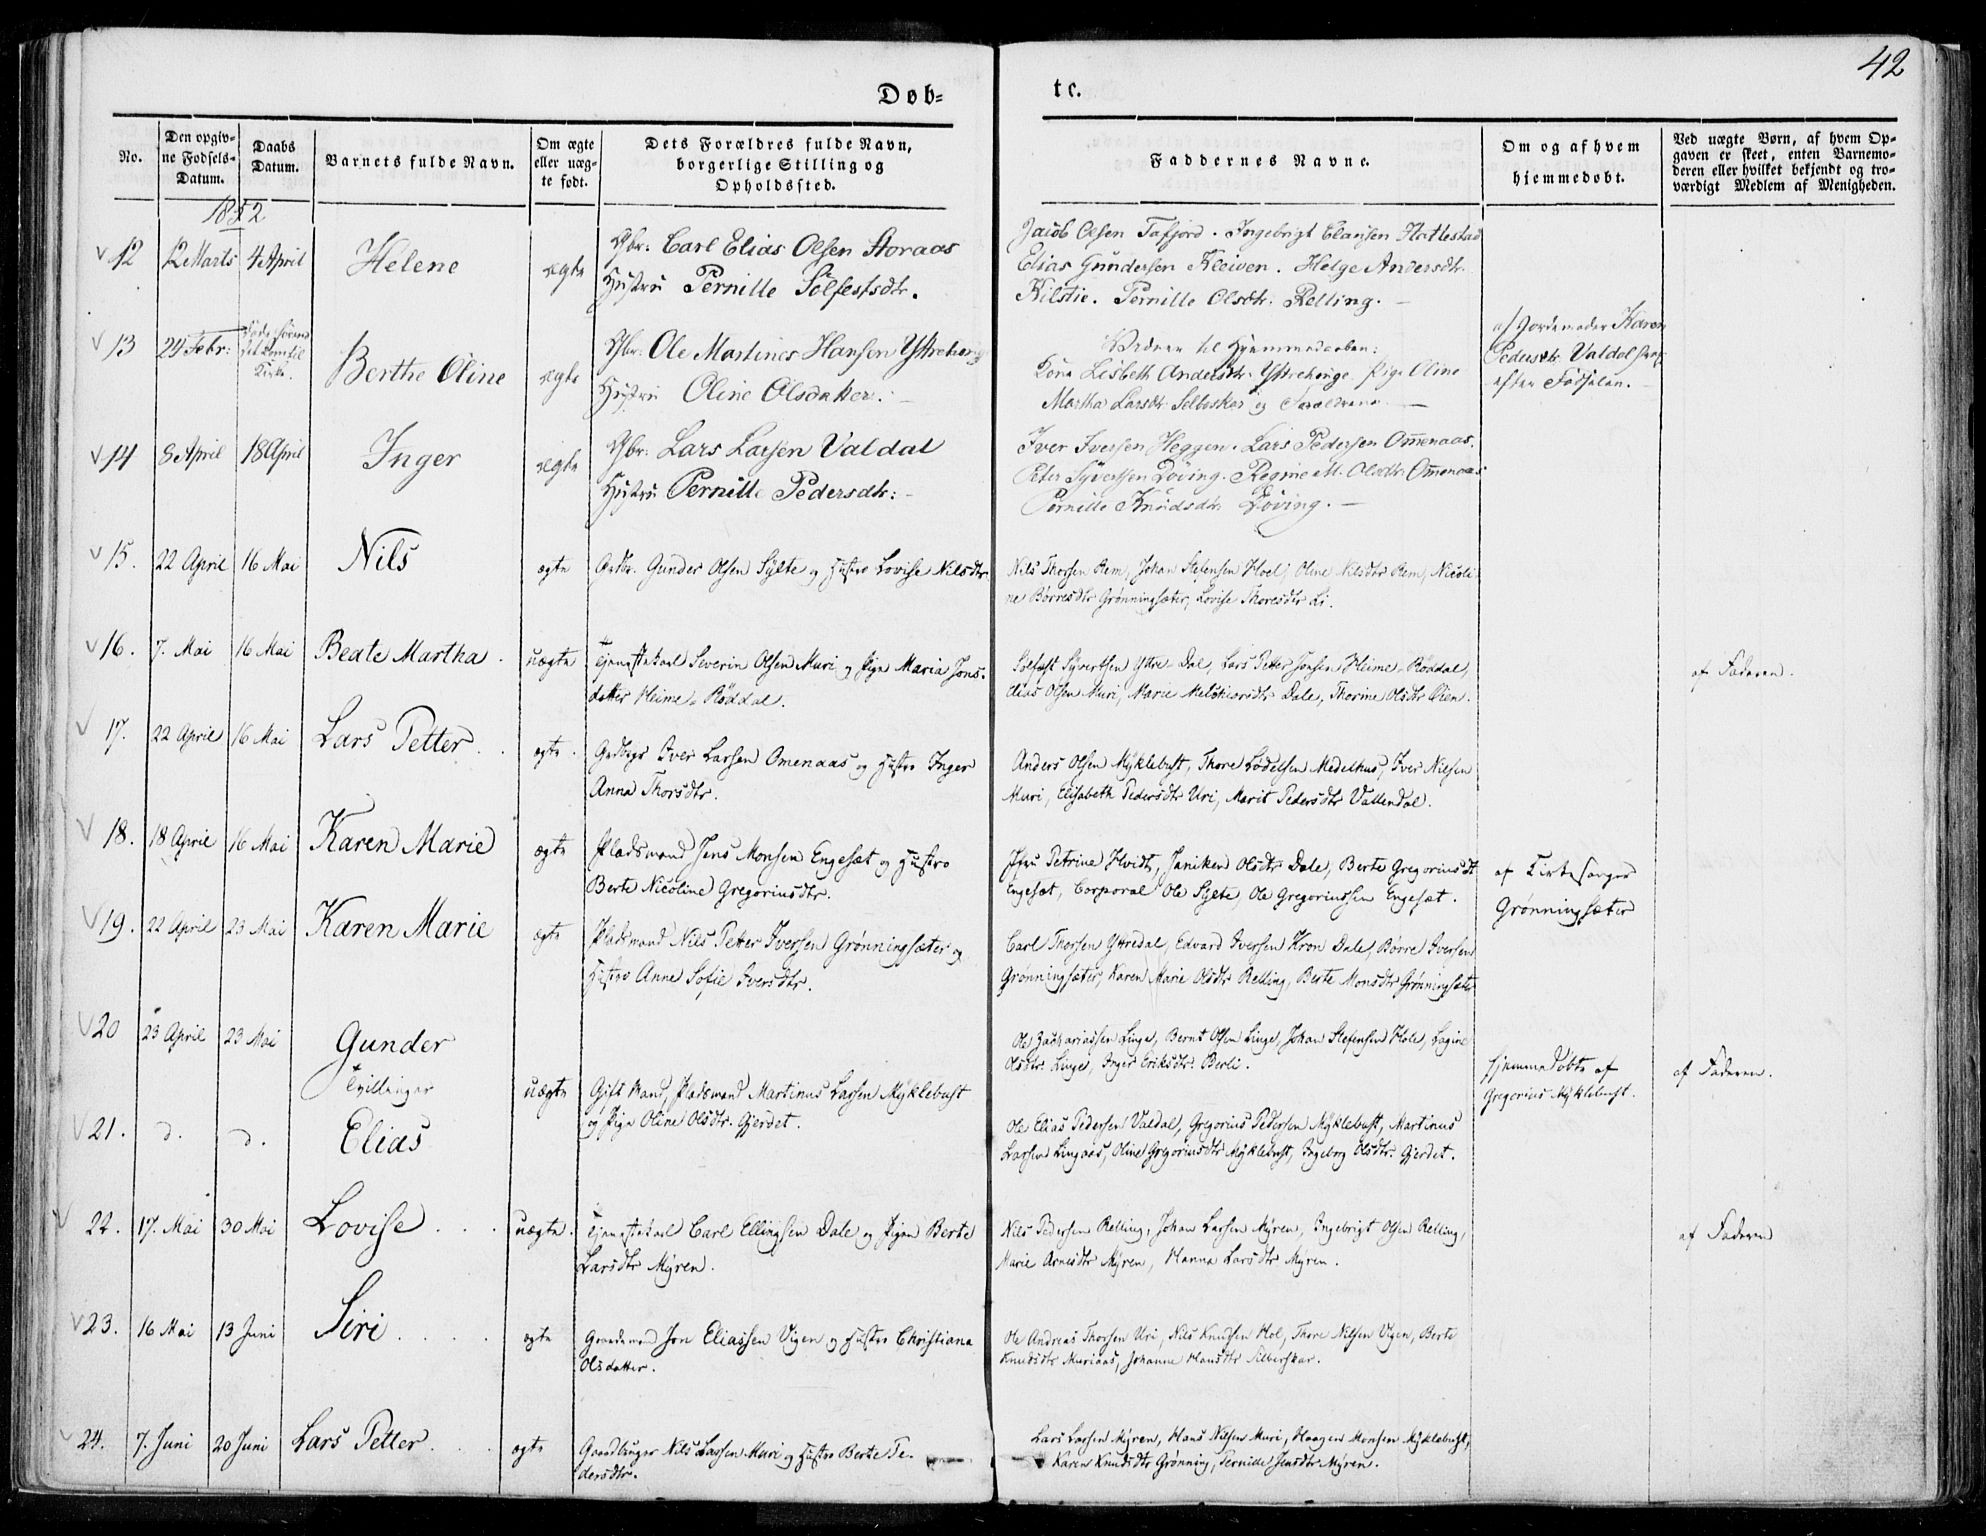 42
Døb-
te.
No.
Den opgiv-
ne Fødsels-
Datum.
Daabs
Datum.
Barnets fulde Navn.
Om ægte
eller uæg-
te født.
Dets Forældres fulde Navn,
borgerlige Stilling og
Opholdssted.
Faddernes Navne.
Om og af hvem
hjemmedøbt.
Ved uægte Børn, af hvem Op-
gaven er skeet, enten Barnemo-
deren eller hvilket bekjendt og tro-
værdigt Medlem af Menigheden.
1852
12 12 Marts 4 April Helene ægte
Gbr: Carl Elias Olsen Storaas
Hustru Pernille Solfestsdtr.
Jacob Olsen Tafjord. Ingebrigt Clausen Hattestad
Elias Gundersen Kleiven. Helge Andersdtr.
Kilstie. Pernille Olsdtr: Relling.
13 24 Febr: Berthe Oline ægte
Gbr: Ole Martines Hansen Yttrehorg
Hustru Oline Olsdatter.
til Hjemmedaaben:
Kone Lisbeth Andersdtr. Yttrehorge. Pige Oline
Martha Larsdtr. Selboskar og Forældrene.
af Jordemoder Karen
Pedersdtr. Valdal strax
efter Fødselen.
14 8 April 18 April Inger ægte
Gbr: Lars Larsen Valdal
Hustru Pernille Pedersdtr:
Iver Iversen Heggen. Lars Pedersen Omenaas.
Peter Syversen Døving. Regine M. Olsdtr. Omenaas
Pernille Knudsdtr Døving.
15. 22 April 16 Mai Nils ægte
Grdbr. Gunder Olsen Sylte og Hustro Lovise Nilsdtr.
Nils Thorsen Rem, Johan Stefensen Hoel, Oline Nilsdtr Rem, Nicoli-
ne Børresdtr Grønningsæter, Lovise Thoresdtr Li.
16. 7. Mai 16 Mai Beate Martha. uægte
Tjenestekarl Severin Olsen Muri og Pige Maria Jons-
datter Heime-Røddal.
Solfest Syvertsen Yttre-Dal, Lars Petter Jonsen Heime-Røddal,
Elias Olsen Muri, Marie Melchiorsdtr Dale, Thorine Olsdtr Øien.
af Faderen.
17. 22 April 16 Mai Lars Petter. ægte.
Grdbrgr Iver Larsen Omenaas og Hustro Inger
Anna Thorsdtr.
Anders Olsen Myklebust, Thore Lødelsen Medelhus, Iver Nilsen
Muri, Elisabeth Pedersdtr Uri, Marit Pedersdtr Vallendal.
18. 18 April 16 Mai Karen Marie ægte
Pladsmand Jens Monsen Engesæt og Hustro
Berte Nicoline Gregoriusdtr.
Jfru Petrine Hvidt, Janiken Olsdtr Dale, Berte Gregoriusdt.
Engesæt, Corporal Ole Sylte, Ole Gregoriussen Engesæt.
af Kirkesanger
Grønningsæter
19. 22 April 23 Mai Karen Marie ægte
Pladsmand Nils Petter Iversen Grønningsæter og
Hustro Anne Sofie Iversdtr.
Carl Thorsen Yttredal, Edvard Iversen Kron Dale, Børre Iversen
Grønningsæter, Karen Marie Olsdtr Relling, Berte Monsdtr Grønningsæter
20 23 April 23 Mai Gunder
Tvillinger uægte
Gift Mand, Pladsmand Martinus Larsen Myklebust
og Pige Oline Olsdtr. Gjerdet.
Ole Zachariassen Linge, Bernt Olsen Linge, Johan Stefensen Hole, Lagine
Olsdtr. Linge, Inger Eriksdtr. Berli.
Hjemmedøbte af
Gregorius Myklebust.
af Faderen.
21. d. d. Elias
Ole Elias Pedersen Valdal, Gregorius Pedersen Myklebust, Martinus
Larsen Lingaas, Oline Gregoriusdtr Myklebust, Ingeborg Olsdtr. Gjerdet.
22. 17. Mai 30 Mai Lovise uægte.
Tjenestekarl Carl Ellingsen Dale og Pigen Berte
Larsdtr Myren.
Nils Pedersen Relling, Johan Larsen Myren, Ingebrigt Olsen Relling,
Marie Arnesdtr Myren, Hanna Larsdtr Myren.
af Faderen
23. 16 Mai 13 Juni Siri ægte
Gaardmand Jon Eliassen Vigen og Hustro Christiana
Olsdatter.
Ole Andreas Thorsen Uri, Nils Knudsen Hol, Thore Nilsen Vigen, Berte
Knudsdtr Muriaas, Johanne Hansdtr Silberskar.
24. 7. Juni 20 Juni Lars Petter. ægte
Gaardbruger Nils Larsen Muri og Hustro Berte Pe-
dersdtr.
Lars Larsen Myren, Hans Nilsen Muri, Haagen Monsen Myklebust,
Karen Knudsdtr Grønning, Pernille Jensdtr Myren.